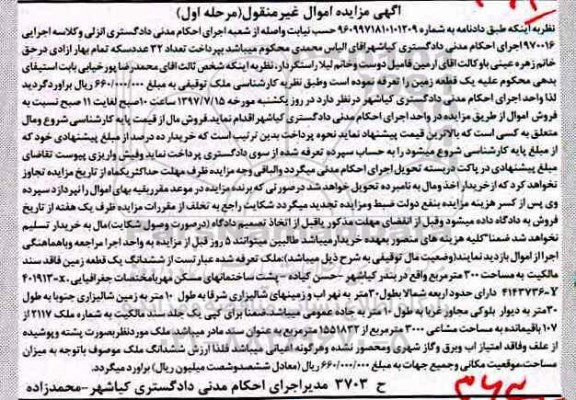 آگهی مزایده اموال غیرمنقول(مرحله اول)
نظربه اینکه طبق دادنامه به شماره ۹۶۰۹۹۷۱۸۱۰۱۰۱۳۰۹ حسب نیابت واصله از شعبه اجرای احکام مدنی دادگستری انزلی وکلاسه اجرایی
۹۷۰۰۱۶ اجرای احکام مدنی دادگستری کیاشهر آقای الیاس محمدی محکوم میباشد بپرداخت تعداد ۳۲ عددسکه تمام بهار آزادی درحق
خانم زهره عینی باوکالت آقای آرمین فامیل دوست وخانم لیلا راستگردار، نظربه اینکه شخص ثالث آقای محمدرضا پورخبایی بابت استیفای
بدهی محکوم علیه یک قطعه زمین را تعرفه نموده است وطبق نظریه کارشناسی ملک توقیفی به مبلغ ۶۶۰/۰۰۰/۰۰۰ ریال برآوردگردید
لذا واحد اجرای احکام مدنی دادگستری کیاشهر درنظر دارد در روز یکشنبه مورخه ۱۳۹۷/۷/۱۵ ساعت ۱۰صبح لغایت ۱۱ صبح نسبت به
فروش اموال از طریق مزایده در واحد اجرای احکام مدنی دادگستری کیاشهر اقدام نماید.فروش مال از قیمت پایه کارشناسی شروع ومال
متعلق به کسی است که بالاترین قیمت پیشنهاد نماید نحوه پرداخت بدین ترتیب است که خریدار ده درصد از مبلغ پیشنهادی خود که
از مبلغ پایه کارشناسی شروع میشود را به حساب سپرده تعرفه شده از سوی دادگستری پرداخت نماید وفیش واریزی پیوست تقاضای
مبلغ پیشنهادی در پاکت دربسته تحویل اجرای احکام مدنی میگردد والباقی وجه مزایده ظرف مهلت حداکثریکماه از تاریخ مزایده تجاوز
نخواهد کرد که از خریدار اخذ ومال به نامبرده تحویل خواهد شد درصورتی که برنده مزایده در موعد مقرربقیه بهای اموال را نپردازد سپرده
وی پس از کسر هزینه مزایده بنفع دولت ضبط ومزایده تجدید میگردد شکایت راجع به تخلف از مقررات مزایده ظرف یک هفته از تاریخ
فروش به دادگاه داده میشود وقبل از انقضای مهلت مذکور یاقبل از اتخاذ تصمیم دادگاه (درصورت وصول شکایت)مال به خریدار تسلیم
نخواهد شد ضمنا"کلیه هزینه های متصور بعهده خریدارمیباشد طالبین میتوانند ۵ روز قبل از مزایده به واحد اجرا مراجعه وباهماهنگی
اجرا از اموال بازدید نمایند(وضعیت مال توقیفی به شرح ذیل میباشد):ملک تعرفه شده عبارت است از ششدانگ یک قطعه زمین فاقد سند
مالکیت به مساحت ۳۰۰ مترمربع واقع در بندر کیاشهر -حسن کیاده -پشت ساختمانهای مسکن مهربامختصات جغرافیایی ۴۰۱۹۱۳-x،
۴۱۴۳۷۳۶-Y دارای حدود اربعه شمالا بطول۳۰متر به نهر آب و زمینهای شالیزاری شرقا به طول ۱۰ متر به زمین شالیزاری جنوبا به طول
۳۰متر به دیوار بلوکی مجاور غربا به طول ۱۰ متر به جاده عمومی میباشد ضمنا برای کپی یک جلد سند مالکیت به شماره ملک ۲۱۱۷ از
۱۰۷ باقیمانده به مساحت مشاعی ۳۰۰۰ مترمربع از ۱۵۵۱۸۳۲ مترمربع به عنوان سند مادر میباشد. ملک موردنظربصورت پشته وپوشیده
از علف وفاقد امتیاز آب وبرق وگاز شهری ومحصور نشده وهرگونه اعیانی میباشد فلذا ارزش ششدانگ ملک موصوف باتوجه به میزان
مساحت،موقعیت مکانی وجمیع جهات به مبلغ ۶۶۰/۰۰۰/۰۰۰ ریال (معادل ششصدوشصت میلیون ریال) برآورد میگردد.
ح ۳۷۰۳ مدیراجرای احکام مدنی دادگستری کیاشهر-محمدزاده